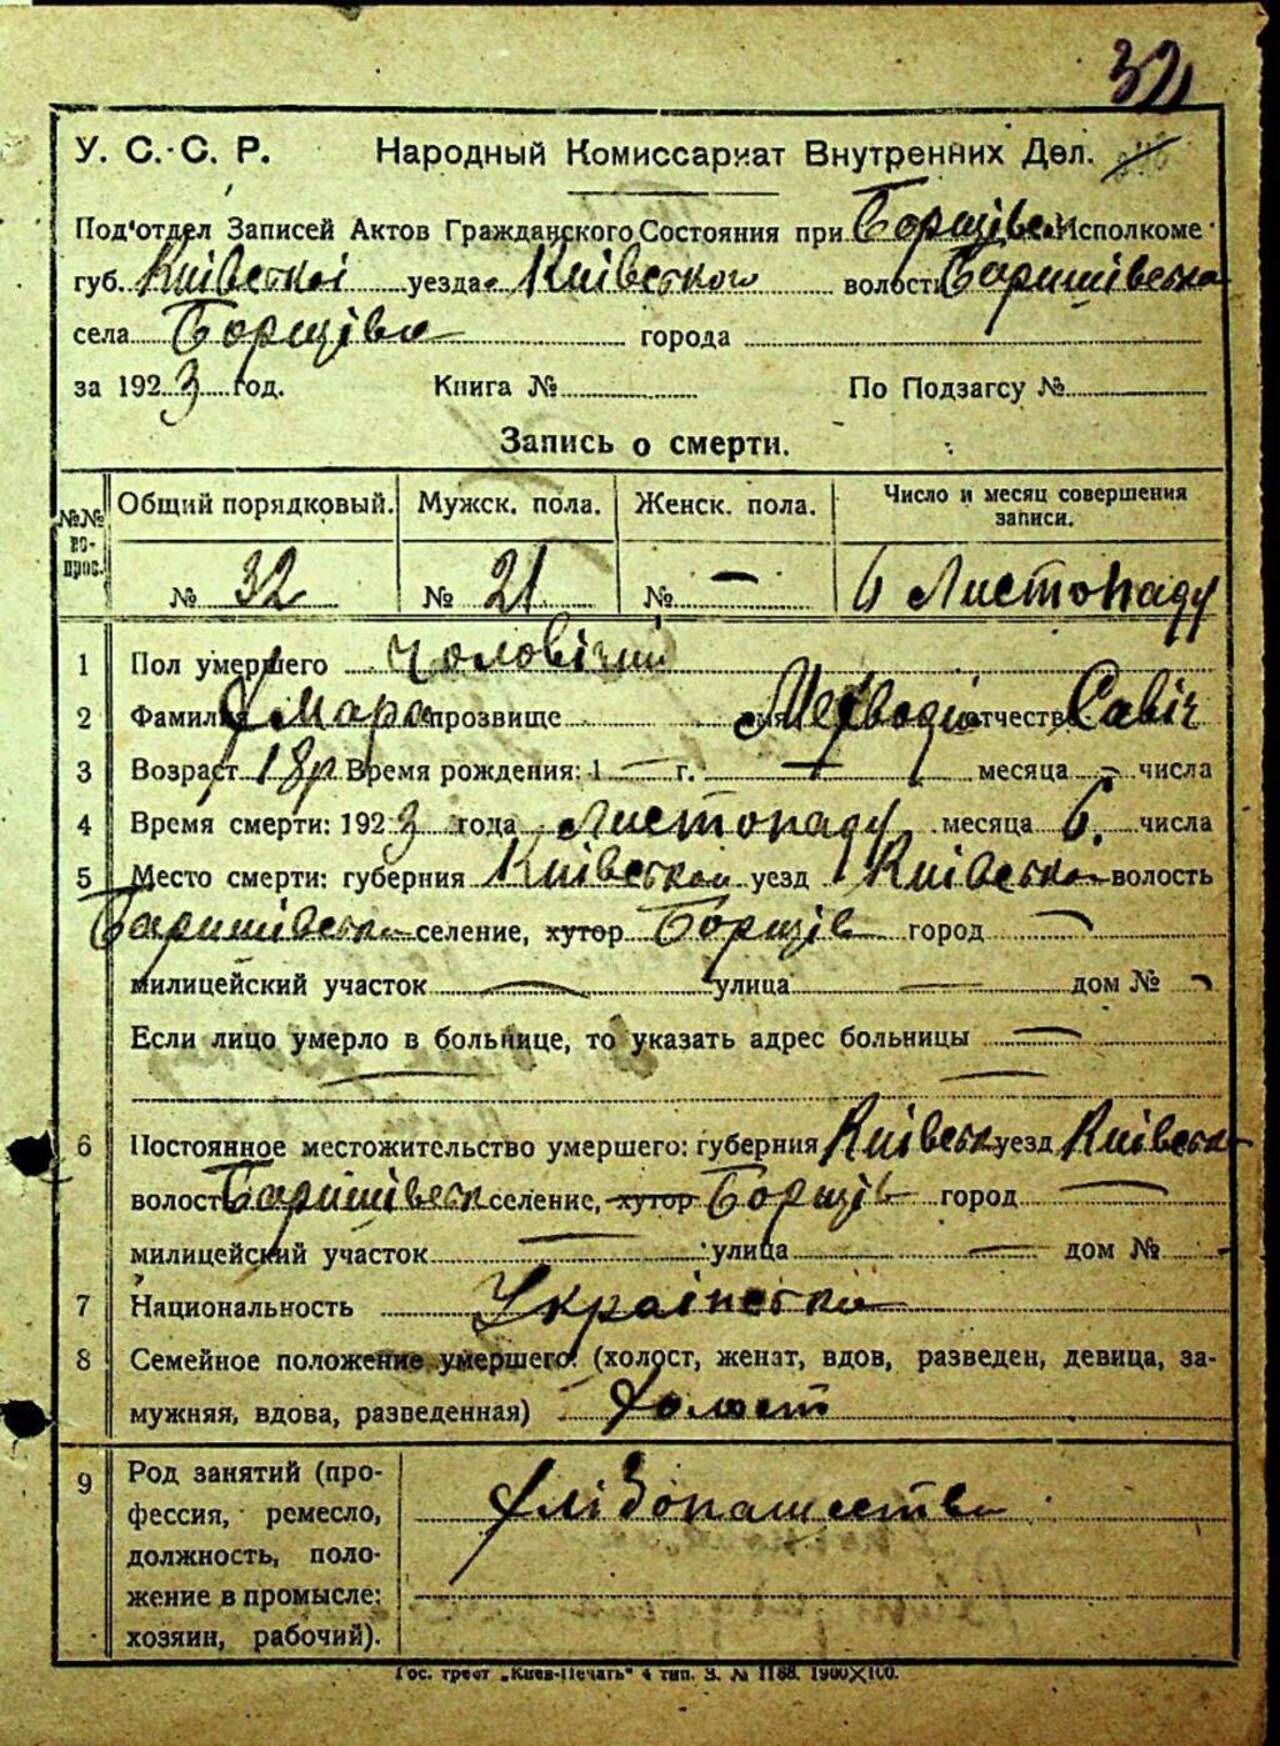 32
У. С. С. Р. Народный Комиссариат Внутренних Дел.
Под'отдел Записей Актов Гражданского Состояния при Борщівс. Исполкоме
губ. Київської уезда Київського волости Баришівська
села Борщіва города
за 1923 год. Книга № По Подзагсу №
Запись о смерти.
№№ вопрос. Общий порядковый. Мужск. пола. Женск. пола. Число и месяц совершения записи.
№ 32 № 21 № — 6 Листопаду
1 Пол умершего чоловічий
2 Фамилия Хмара прозвище имя отчество Савіч
3 Возраст 18р Время рождения: 1 — г. — месяца - числа
4 Время смерти: 1923 года Листопаду месяца 6. числа
5 Место смерти: губерния Київської уезд Київської волость
Баришівська селение, хутор Борщів город —
милицейский участок — улица — дом № -
Если лицо умерло в больнице, то указать адрес больницы —
— —
6 Постоянное местожительство умершего: губерния Київськ уезд Київськ
волость Баришівськ селение, хутор Борщів город —
милицейский участок — улица — дом № -
7 Национальность Українська
8 Семейное положение умершего: (холост, женат, вдов, разведен, девица, за-
мужняя, вдова, разведенная) Холост
9 Род занятий (про-
фессия, ремесло,
должность, поло-
жение в промысле:
хозяин, рабочий).
Хлібопашество
Гос. трест „Киев-Печать" 4 тип. З. № 1188. 1900×100.